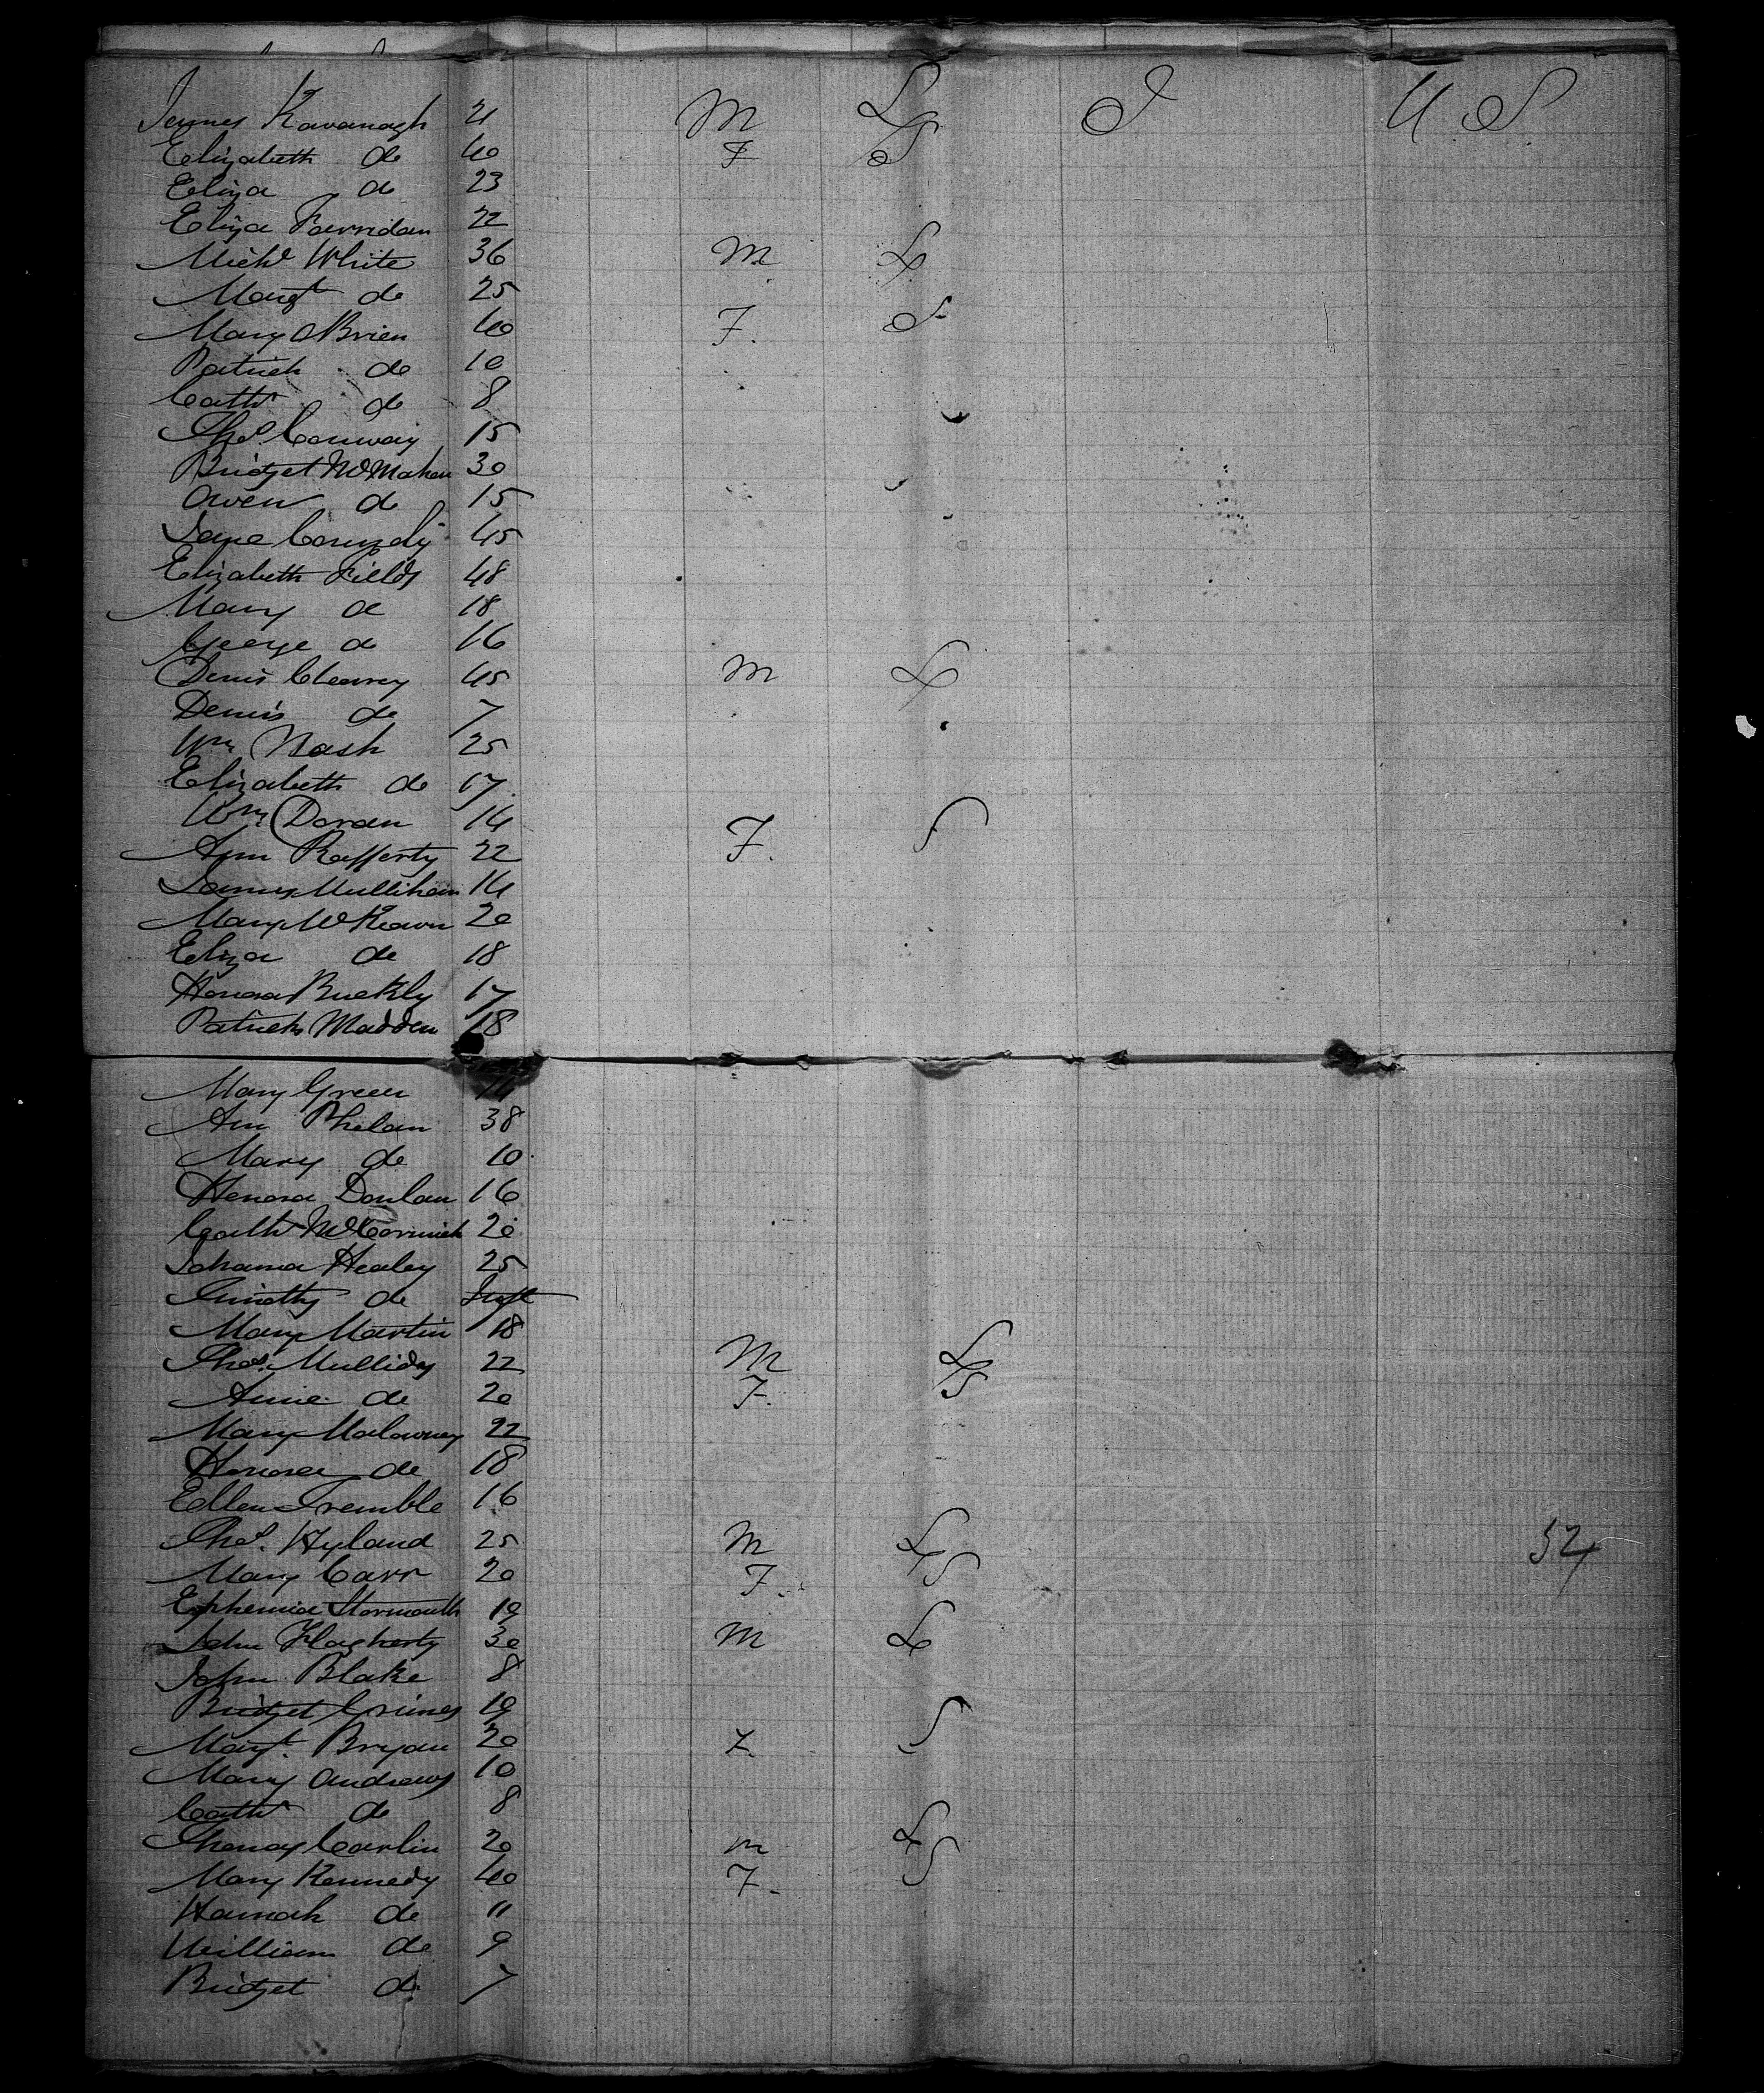 James Kavanagh 21 M L I U S
Elizabeth do 40 F S
Eliza do 23
Eliza Farridan 22
Michl White 36 M L
Margt do 25
Mary OBrien 40 F. S
Patrick do 10
Cathn do 8
Thos. Conway 15
Bridget McMahon 30
Owen do 15
Jane Connely 45
Elizabeth Fields 48
Mary do 18
George do 16
Denis Cleary 45 M L
Denis do 7
Wm Nash 25
Elizabeth do 17
Wm Doran 14
Ann Rafferty 22 F. S
James Mullihan 14
Mary McKeown 20
Eliza do 18
Honora Buckly 17
Patrick Madden 18
Mary Green
Ann Phelan 38
Mary do 10
Honora Donlan 16
Cath McCormick 20
Johanna Healey 25
Timothy do Inft
Mary Martin 18
Thos. Mulliday 22 M L
Annie do 20 F. S
Mary Malowney 22
Honora do 18
Ellen Tremble 16
Thos. Hyland 25 M L 52
Mary Carr 20 F. S
Ephemia Stormonth 19
John Flagherty 30 M L
John Blake 8
Bridget Grimes 19
Margt. Bryan 20 F. S
Mary Andrews 10
Cathn do 8
Thomas Carlin 20 M L
Mary Kennedy 40 F. S
Hannah do 11
William do 9
Bridget do 7